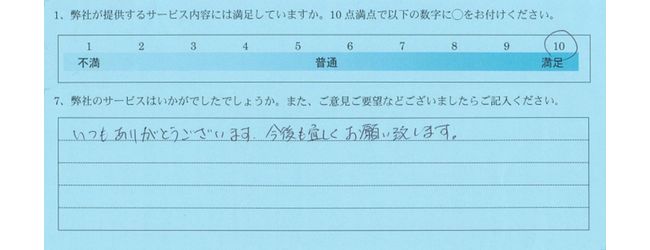 1、弊社が提供するサービス内容には満足していますか。10点満点で以下の数字に○をお付けください。
1 2 3 4 5 6 7 8 9 10
不満 普通 満足
7、弊社のサービスはいかがでしたでしょうか。また、ご意見ご要望などございましたらご記入ください。
いつもありがとうございます。今後も宜しくお願い致します。